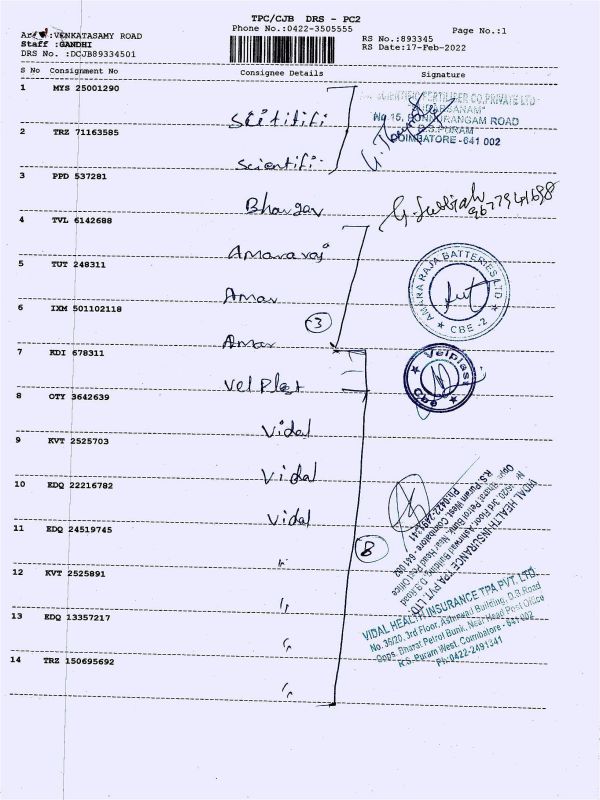 TPC/CJB DRS - PC2
Phone No.:0422-3505555
Page No.:1
VENKATASAMY ROAD
Staff :GANDHI
DRS No. :DCJB89334501
RS No.:893345
RS Date:17-Feb-2022
S No Consignment No Consignee Details Signature
1 MYS 25001290
SCIENTIFIC FERTILISER CO.PRIVATE LTD
No.15, PONNURANGAM ROAD
R.S.PURAM
COIMBATORE - 641 002
2 TRZ 71163585
Scientifi
3 PPD 537281
Bhargav
G. Subbiah
9677941698
4 TVL 6142688
Amararaj
5 TUT 248311
Amar
AMARA RAJA BATTERIES LTD
CBE -2
6 IXM 501102118
3
Amar
7 KDI 678311
Vel Plast
Velplast
Cbe
8 OTY 3642639
Vidal
9 KVT 2525703
Vidal
10 EDQ 22216782
Vidal
VIDAL HEALTH INSURANCE TPA PVT. LTD.
No. 35/20, 3rd Floor, Ashirwad Building, D.B.Road
Opps. Bharat Petrol Bunk, Near Head Post Office
R.S. Puram West, Coimbatore - 641 002
Ph:0422-2491341
11 EDQ 24519745
"
8
12 KVT 2525891
"
13 EDQ 13357217
"
VIDAL HEALTH INSURANCE TPA PVT. LTD.
No. 35/20, 3rd Floor, Ashirwad Building, D.B.Road
Opps. Bharat Petrol Bunk, Near Head Post Office
R.S. Puram West, Coimbatore - 641 002
Ph:0422-2491341
14 TRZ 150695692
"